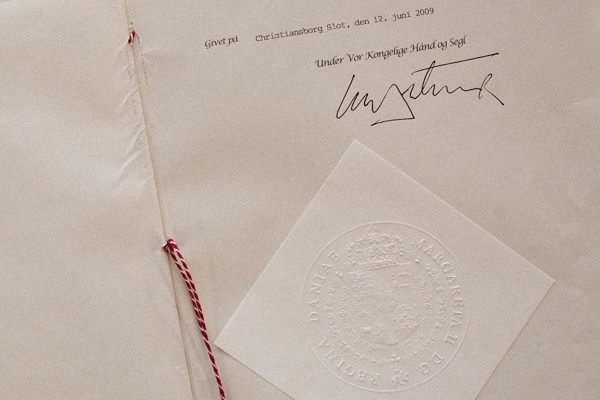 Givet på Christiansborg Slot, den 12. juni 2009
Under Vor Kongelige Hånd og Segl
MARGARETA II D.G. REGINA DANIAE